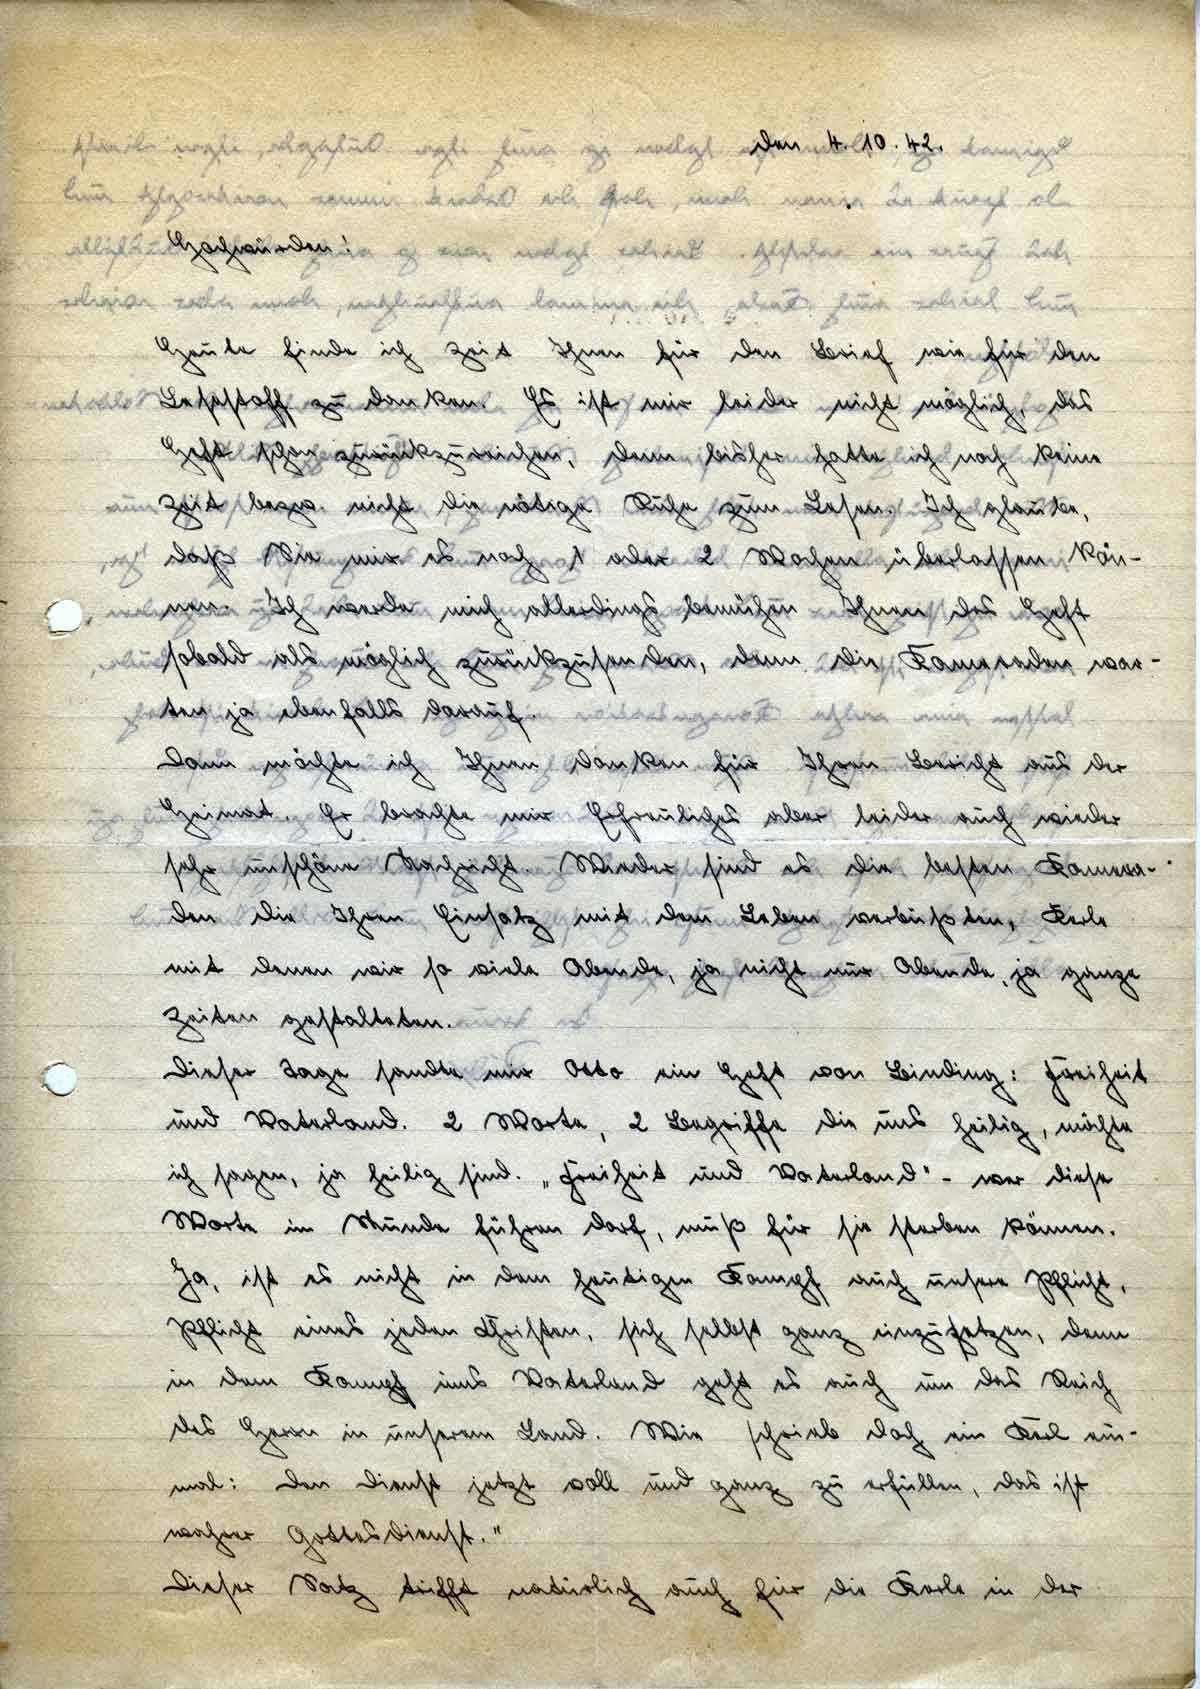 den 4. 10. 42.
Hochwürden!
Heute finde ich Zeit Ihnen für den Brief wie für den
Lesestoff zu danken. Es ist mir leider nicht möglich, das
Heft schon zurückzureichen, denn bisher hatte ich noch keine
Zeit bezw. nicht die nötige Ruhe zum Lesen. Ich glaube,
daß Sie mir es noch 1 oder 2 Wochen überlassen kön-
nen. Ich werde mich allerdings bemühen Ihnen das Heft
sobald als möglich zurückzusenden, denn die Kameraden war-
ten ja ebenfalls darauf.
Dann möchte ich Ihnen danken für Ihren Bericht aus der
Heimat. Er brachte mir Erfreuliches aber leider auch wieder
sehr unschöne Nachricht. Wieder sind es die besten Kamera-
den die Ihren Einsatz mit dem Leben verbüßten, Kerle
mit denen wir so viele Abende, ja nicht nur Abende, ja ganze
Zeiten gestalteten.
Dieser Tage sandte mir Otto ein Heft von Binding: Freiheit
und Vaterland. 2 Worte, 2 Begriffe die uns heilig, möchte
ich sagen, ja heilig sind. „Freiheit und Vaterland" - wer diese
Worte im Munde führen darf, muß für sie sterben können.
Ja, ist es nicht in dem heutigen Kampf auch unsere Pflicht,
Pflicht eines jeden Christen, sich selbst ganz einzusetzen, denn
in dem Kampf ums Vaterland geht es auch um das Reich
des Herrn in unserem Land. Wie schrieb doch ein Kerl ein-
mal: Den Dienst jetzt voll und ganz zu erfüllen, das ist
wahrer Gottesdienst."
Dieser Satz trifft natürlich auch für die Kerle in der